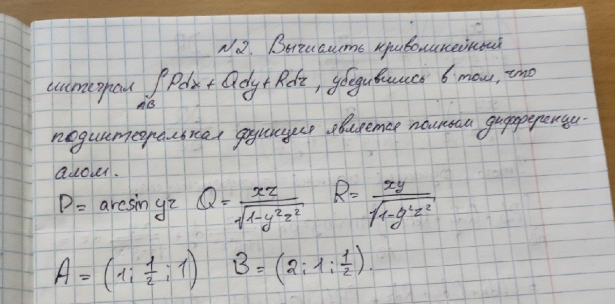 №2. Вычислить криволинейный
интеграл ∫AB Pdx + Qdy + Rdz, убедившись в том, что
подинтегральная функция является полным дифференци-
алом.
P = arcsin yz Q = xz/√(1-y²z²) R = xy/√(1-y²z²)
A = (1; 1/2; 1) B = (2; 1; 1/2).